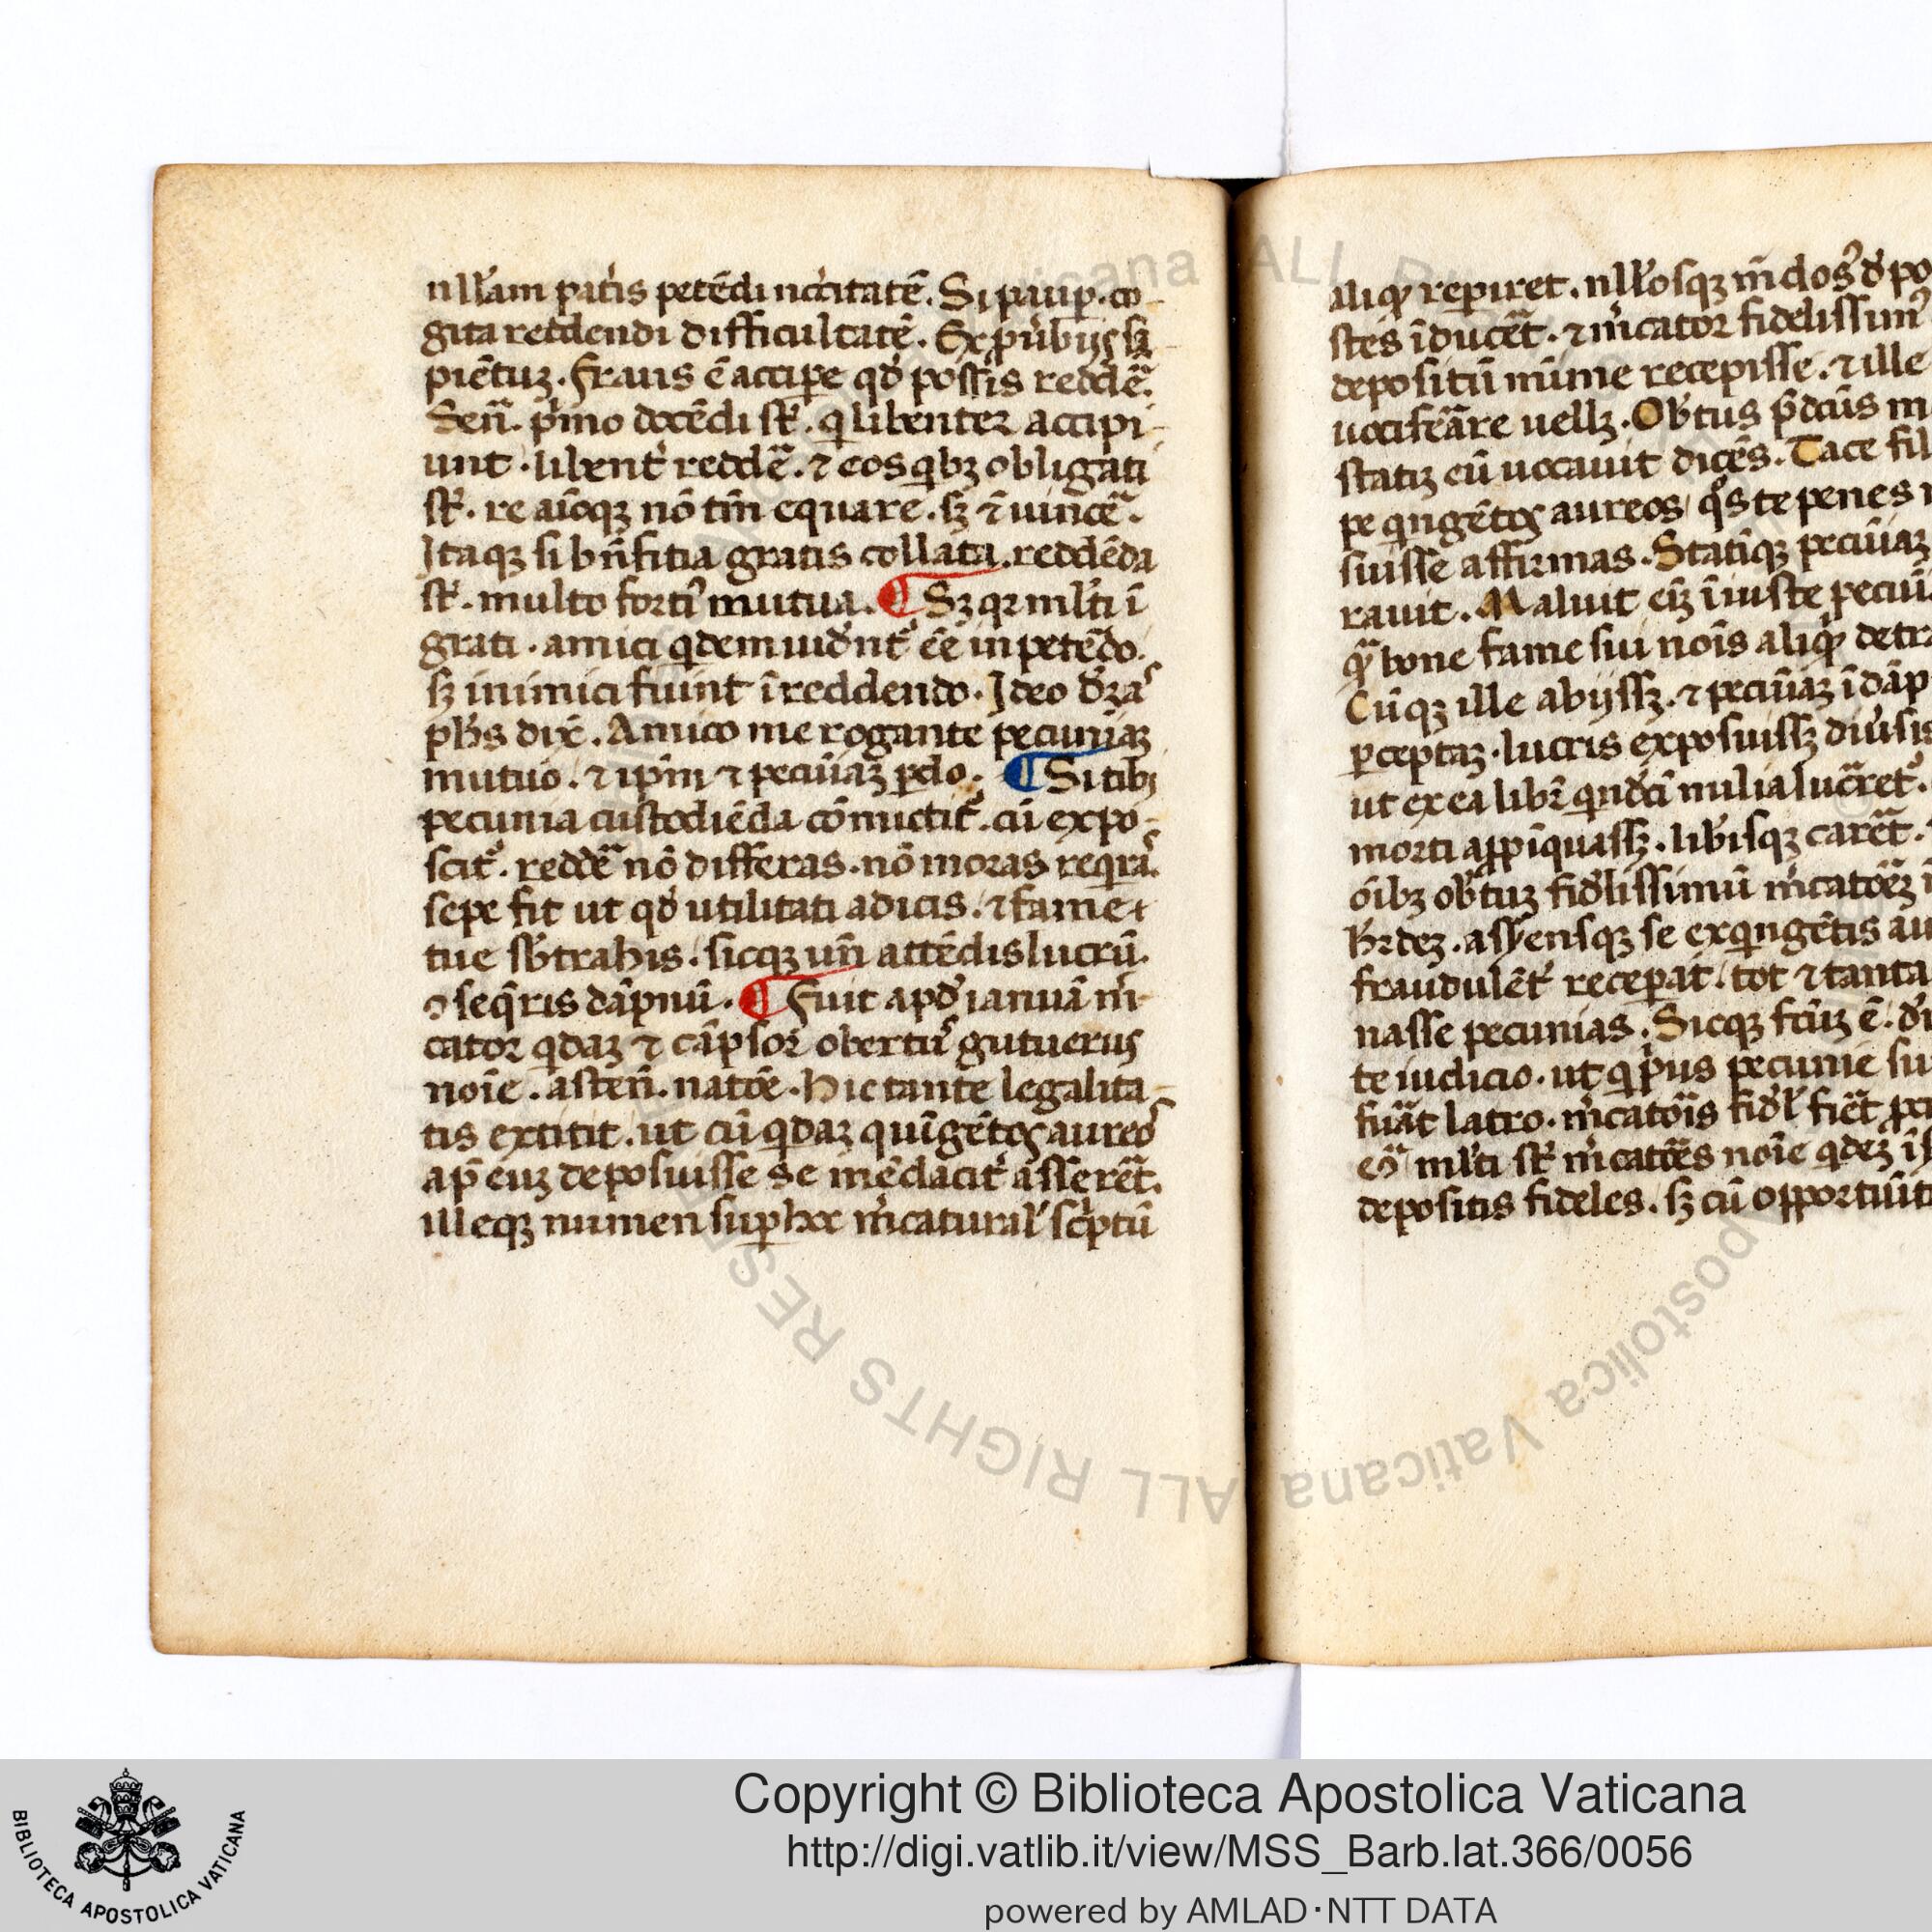 nll̄am pat̓is petēdi nc̄citatē. Si paup̱. co-
gita reddendi difficultatē. Ex pūbijs sa-
piētuꝫ. fraus ē accip̱e qđ possis redd̄e.
Sen̄. p̓mo docēdi st̄. q̓ libenter accipi-
unt. libent̓ redd̄e. ⁊ eos qˡbꝫ obligati
st̄. re aīoqꝫ nō tm̄ equare. sꝫ ⁊ uinc̄e.
Itaqꝫ si bn̄fitia gratis collata. reddēda
st̄. multo forti᷒ mutua. ¶ Sꝫ qꝛ ml̓ti ī
grati. amici qˡdem uid̄nt᷒ ēe in petēdo.
sꝫ inimici fiūnt ī reddendo. Ideo
ph̄s dix̄. Amico me rogante pecuniaꝫ
mutuo. ⁊ ip̄m ⁊ pecūiaꝫ p̱do. ¶ Si tibi
pecunia custodiēda cōmictit᷒. cū expo-
scit᷒. redd̄e nō differas. nō moras reqˡrā.
sepe fit ut qđ utilitati adicis. ⁊ fame
tue sb̄trahis. sicqꝫ un̄ attēdis lucrū.
ↄseq̄ris dāpnū. ¶ Fuit apđ ianuā m̓-
cator qˡdaꝫ ⁊ cāpsor obertu᷒ gutuerius
noīe. asten̄. natōe. Hic tante legalita-
tis extitit. ut cū qˡdaꝫ quīgētoꝝ aureo᷒
ap̄ euꝫ deposuisse se mēdacit̓ assereret.
illeqꝫ numen sup̱ hoc m̓catural̓ sc̓ptū
aliqˡ rep̱iret. nll̓osqꝫ
stes īducēt. ⁊ m̓cator fidelissim᷒
depositū mīme recepisse. ⁊ ille
uociferāre uellꝫ. Ob̓tus p̄dc̄us m
statiꝫ eū uocauit dicēs. Tace fil
pe qˡngētoꝝ aureos qͦs te penes
suisse affirmas. Statīqꝫ pecūiaꝫ
rauit. Maluit eīꝫ īiuste pecūi
qᷓ bone fame sui noīs aliqˡ detra
Cūqꝫ ille abijssꝫ. ⁊ pecūiaꝫ ī dāp
p̱ceptaꝫ. lucris exposuissꝫ diu̓sis
ut ex ea libr̄ milia luc̄ret᷒.
morti app̱īquassꝫ. lib̓isqꝫ carēt.
oībꝫ ob̓tuꝫ fid̓lissimū m̓catōeꝫ
h̓edeꝫ. ass̓ensqꝫ se ex qˡngētis au
fraudulēt̓ recep̱at. tot ⁊ tanta
nasse pecunias. Sicqꝫ fc̄uꝫ ē. di
te iudicio. ut qˡ p̓us pecunie su
fūat latro. m̓catōis fid̓l̓ fiēt
ml̓ti st̄ m̓catōes noīe qˡdeꝫ
depositis fideles. sꝫ cū opportūit
Copyright © Biblioteca Apostolica Vaticana
http://digi.vatlib.it/view/MSS_Barb.lat.366/0056
powered by AMLAD·NTT DATA
BIBLIOTECA APOSTOLICA VATICANA